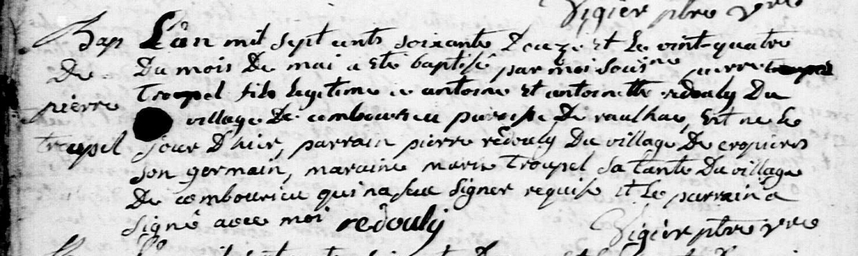 Vigier ptre vre
Bap L'an mil sept cents soixante douze et le vint-quatre
De Du mois De mai a ete baptisé par moi sous.né pierre
pierre troupel fils legitime a antoine et antoinette redouly Du
village De combourieu paroisse De raulhac, Est né le
troupel jour D'hier, parrain pierre redouly Du village De cropieres
son germain, maraine marie troupel sa tante Du village
De combourieu qui na seu signer requise et le parrain a
signé avec moi redouly
Vigier ptre vre